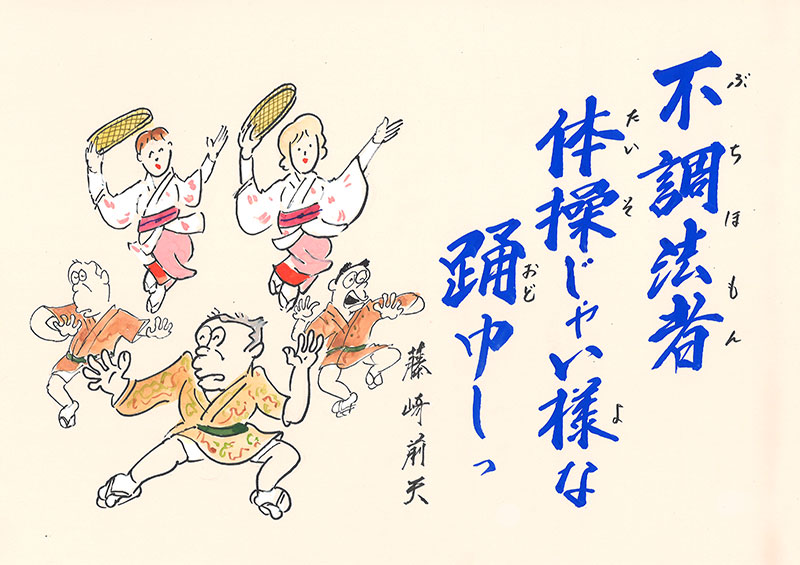 不調法者
ぶちほもん
体操じゃい様な
たいそ よ
踊ゆしっ
おど
藤崎前天